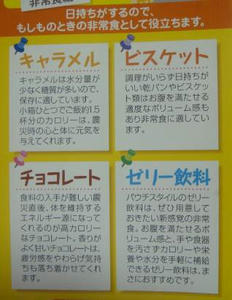 非常食
日持ちがするので、
もしものときの非常食として役立ちます。
キャラメル
キャラメルは水分量が
少なく糖質が多いので、
保存に適しています。
小箱ひとつでご飯約1.5
杯分のカロリーは、震
災時の心と体に元気を
与えてくれます。
ビスケット
調理がいらず日持ちが
いい乾パンやビスケッ
ト類はお腹を満たせる
適度なボリューム感も
あり非常食に適してい
ます。
チョコレート
食料の入手が難しい震
災直後、体を維持する
エネルギー源になって
くれるのが高カロリー
なチョコレート。香りが
よく甘いチョコレートは、
疲労感をやわらげ気持
ちも落ち着かせてくれ
ます。
ゼリー飲料
パウチスタイルのゼリー
飲料は、ぜひ用意して
おきたい新感覚の非常
食。お腹を満たせるボ
リューム感と、手や食器
を汚さずカロリーや栄
養や水分を手軽に補給
できるゼリー飲料は、ま
さにおすすめです。